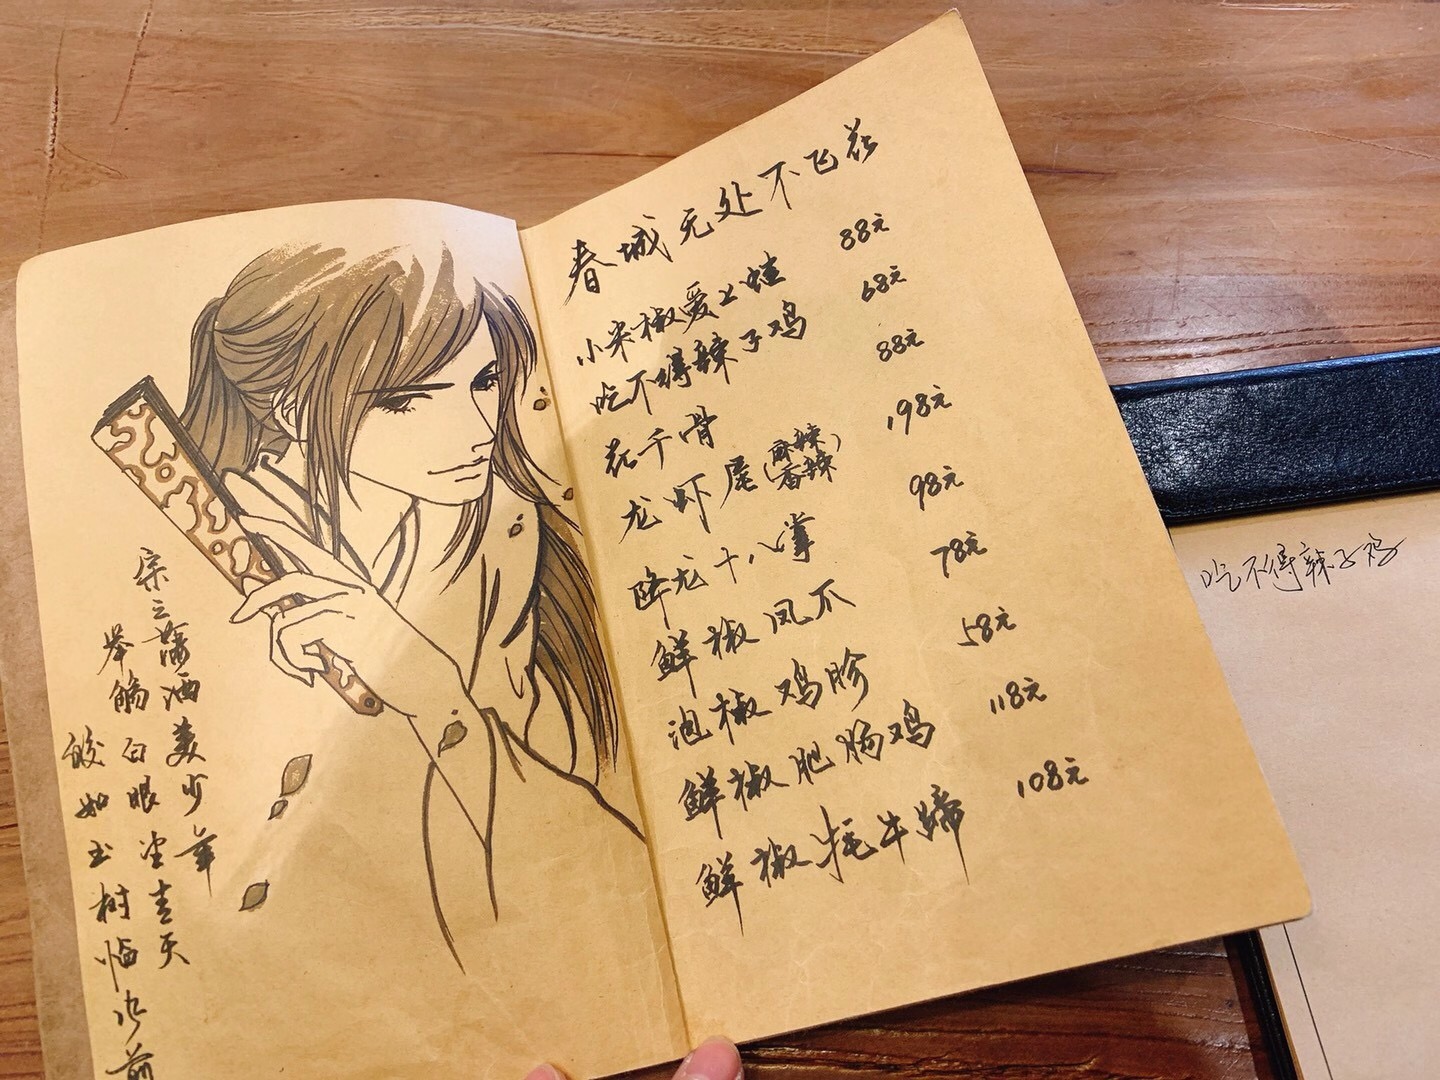 宗之萧洒美少年
举觞白眼望青天
皎如玉树临风前
春城无处不飞花
小米椒爱上蛙 88元
吃不得辣子鸡 68元
花千骨 88元
龙虾尾(麻辣 香辣) 198元
降龙十八掌 98元
鲜椒凤爪 78元
泡椒鸡胗 58元
鲜椒肥肠鸡 118元
鲜椒牦牛蹄 108元
吃不得辣子鸡